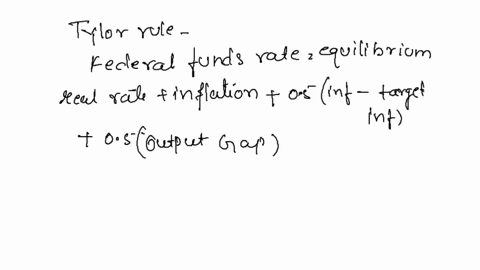 Tylor rule -
Federal funds rate = equilibrium
real rate + inflation + 0.5 (inf - target
inf)
+ 0.5 (Output Gap)